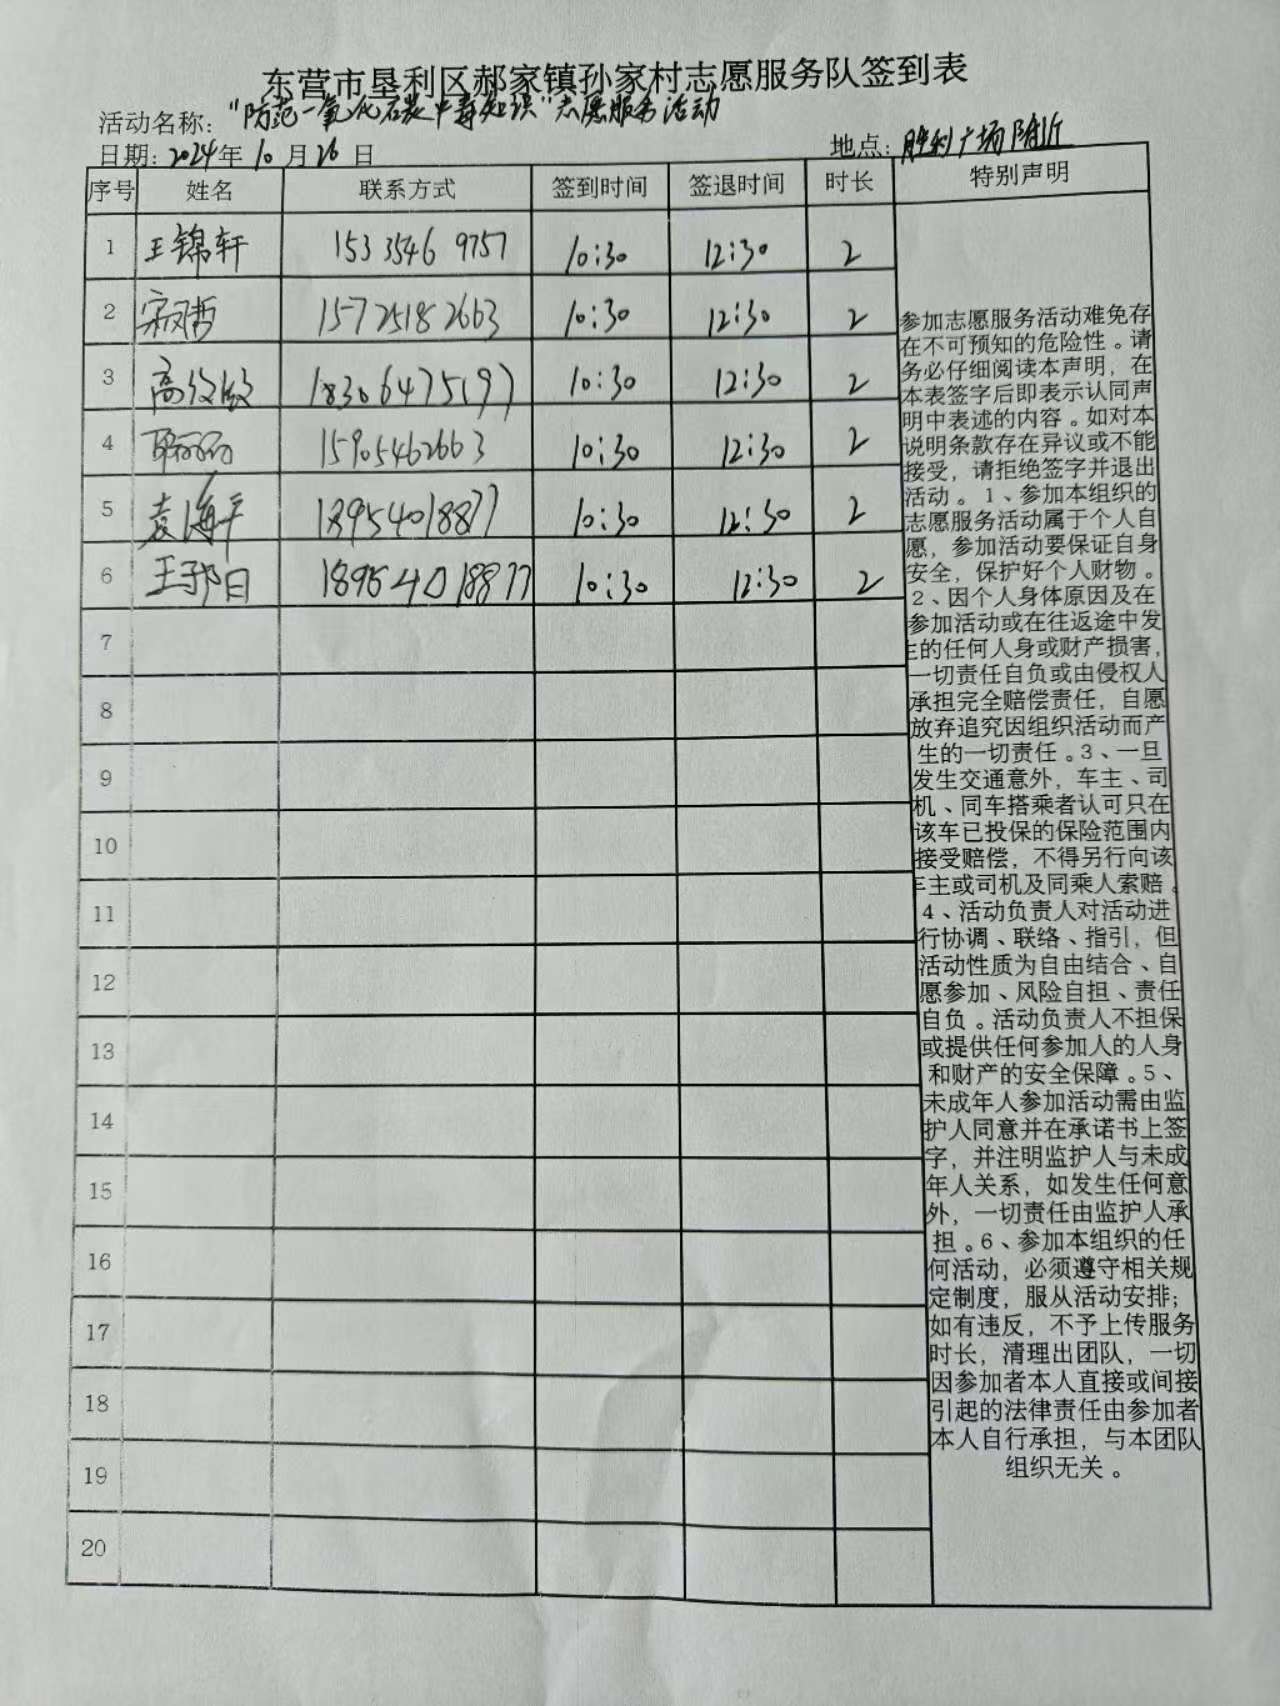 东营市垦利区郝家镇孙家村志愿服务队签到表
活动名称：“防范一氧化碳中毒知识”志愿服务活动
日期：2024年10月26日 地点：胜利广场附近
序号 姓名 联系方式 签到时间 签退时间 时长 特别声明
1 王锦轩 153 3546 9757 10:30 12:30 2
2 15725182663 10:30 12:30 2
3 高 18306475197 10:30 12:30 2
4 15905462663 10:30 12:30 2
5 袁海平 18954018877 10:30 12:30 2
6 王 18954018877 10:30 12:30 2
7
8
9
10
11
12
13
14
15
16
17
18
19
20
参加志愿服务活动难免存
在不可预知的危险性。请
务必仔细阅读本声明，在
本表签字后即表示认同声
明中表述的内容。如对本
说明条款存在异议或不能
接受，请拒绝签字并退出
活动。1、参加本组织的
志愿服务活动属于个人自
愿，参加活动要保证自身
安全，保护好个人财物。
2、因个人身体原因及在
参加活动或在往返途中发
生的任何人身或财产损害，
一切责任自负或由侵权人
承担完全赔偿责任，自愿
放弃追究因组织活动而产
生的一切责任。3、一旦
发生交通意外，车主、司
机、同车搭乘者认可只在
该车已投保的保险范围内
接受赔偿，不得另行向该
车主或司机及同乘人索赔。
4、活动负责人对活动进
行协调、联络、指引，但
活动性质为自由结合、自
愿参加、风险自担、责任
自负。活动负责人不担保
或提供任何参加人的人身
和财产的安全保障。5、
未成年人参加活动需由监
护人同意并在承诺书上签
字，并注明监护人与未成
年人关系，如发生任何意
外，一切责任由监护人承
担。6、参加本组织的任
何活动，必须遵守相关规
定制度，服从活动安排；
如有违反，不予上传服务
时长，清理出团队，一切
因参加者本人直接或间接
引起的法律责任由参加者
本人自行承担，与本团队
组织无关。